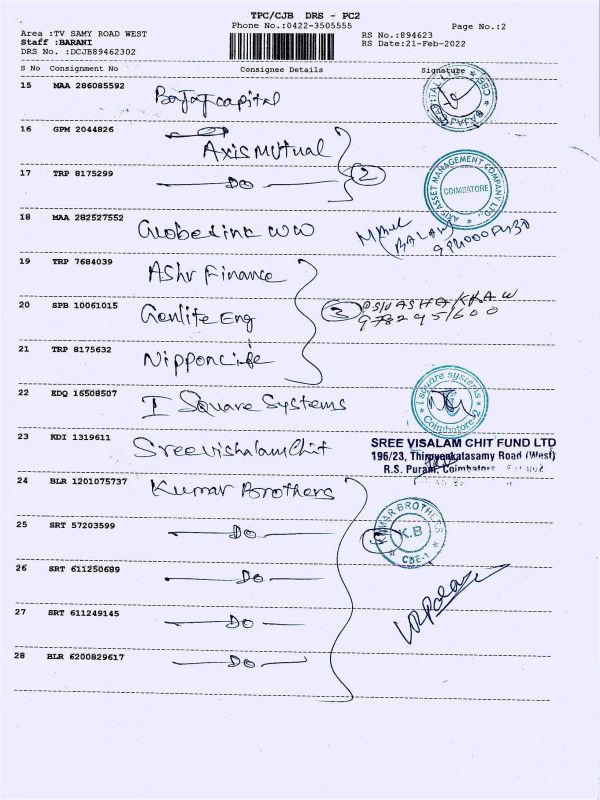 TPC/CJB DRS - PC2
Phone No.:0422-3505555
Page No.:2
Area :TV SAMY ROAD WEST
Staff :BARANI
DRS No. :DCJB89462302
RS No.:894623
RS Date:21-Feb-2022
S No Consignment No Consignee Details Signature
15 MAA 286085592 Bajaj capital
BAJAJ CAPITAL CBE
16 GPM 2044826 Axis Mutual
17 TRP 8175299 DO 2
AXIS ASSET MANAGEMENT COMPANY LTD.
COIMBATORE
18 MAA 282527552 Globelink WW
19 TRP 7684039 Ashv Finance
20 SPB 10061015 Genlite Eng 3
21 TRP 8175632 NipponLife
22 EDQ 16508507 I Square Systems
I square systems
Coimbatore-2
23 KDI 1319611 SreevishalamChit
SREE VISALAM CHIT FUND LTD
196/23, Thiruvenkatasamy Road (West)
R.S. Puram, Coimbatore
24 BLR 1201075737 Kumar Brothers
25 SRT 57203599 DO 5
KUMAR BROTHERS
K.B
CBE-1
26 SRT 611250689 DO
27 SRT 611249145 DO
28 BLR 6200829617 DO